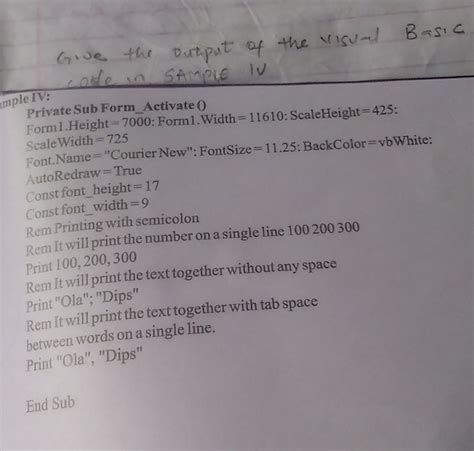 Give the output of the Visual Basic
code in SAMPLE IV
mple IV:
Private Sub Form_Activate ()
Form1.Height = 7000: Form1.Width = 11610: ScaleHeight = 425:
ScaleWidth = 725
Font.Name = "Courier New": FontSize = 11.25: BackColor = vbWhite:
AutoRedraw = True
Const font_height = 17
Const font_width = 9
Rem Printing with semicolon
Rem It will print the number on a single line 100 200 300
Print 100, 200, 300
Rem It will print the text together without any space
Print "Ola"; "Dips"
Rem It will print the text together with tab space
between words on a single line.
Print "Ola", "Dips"
End Sub